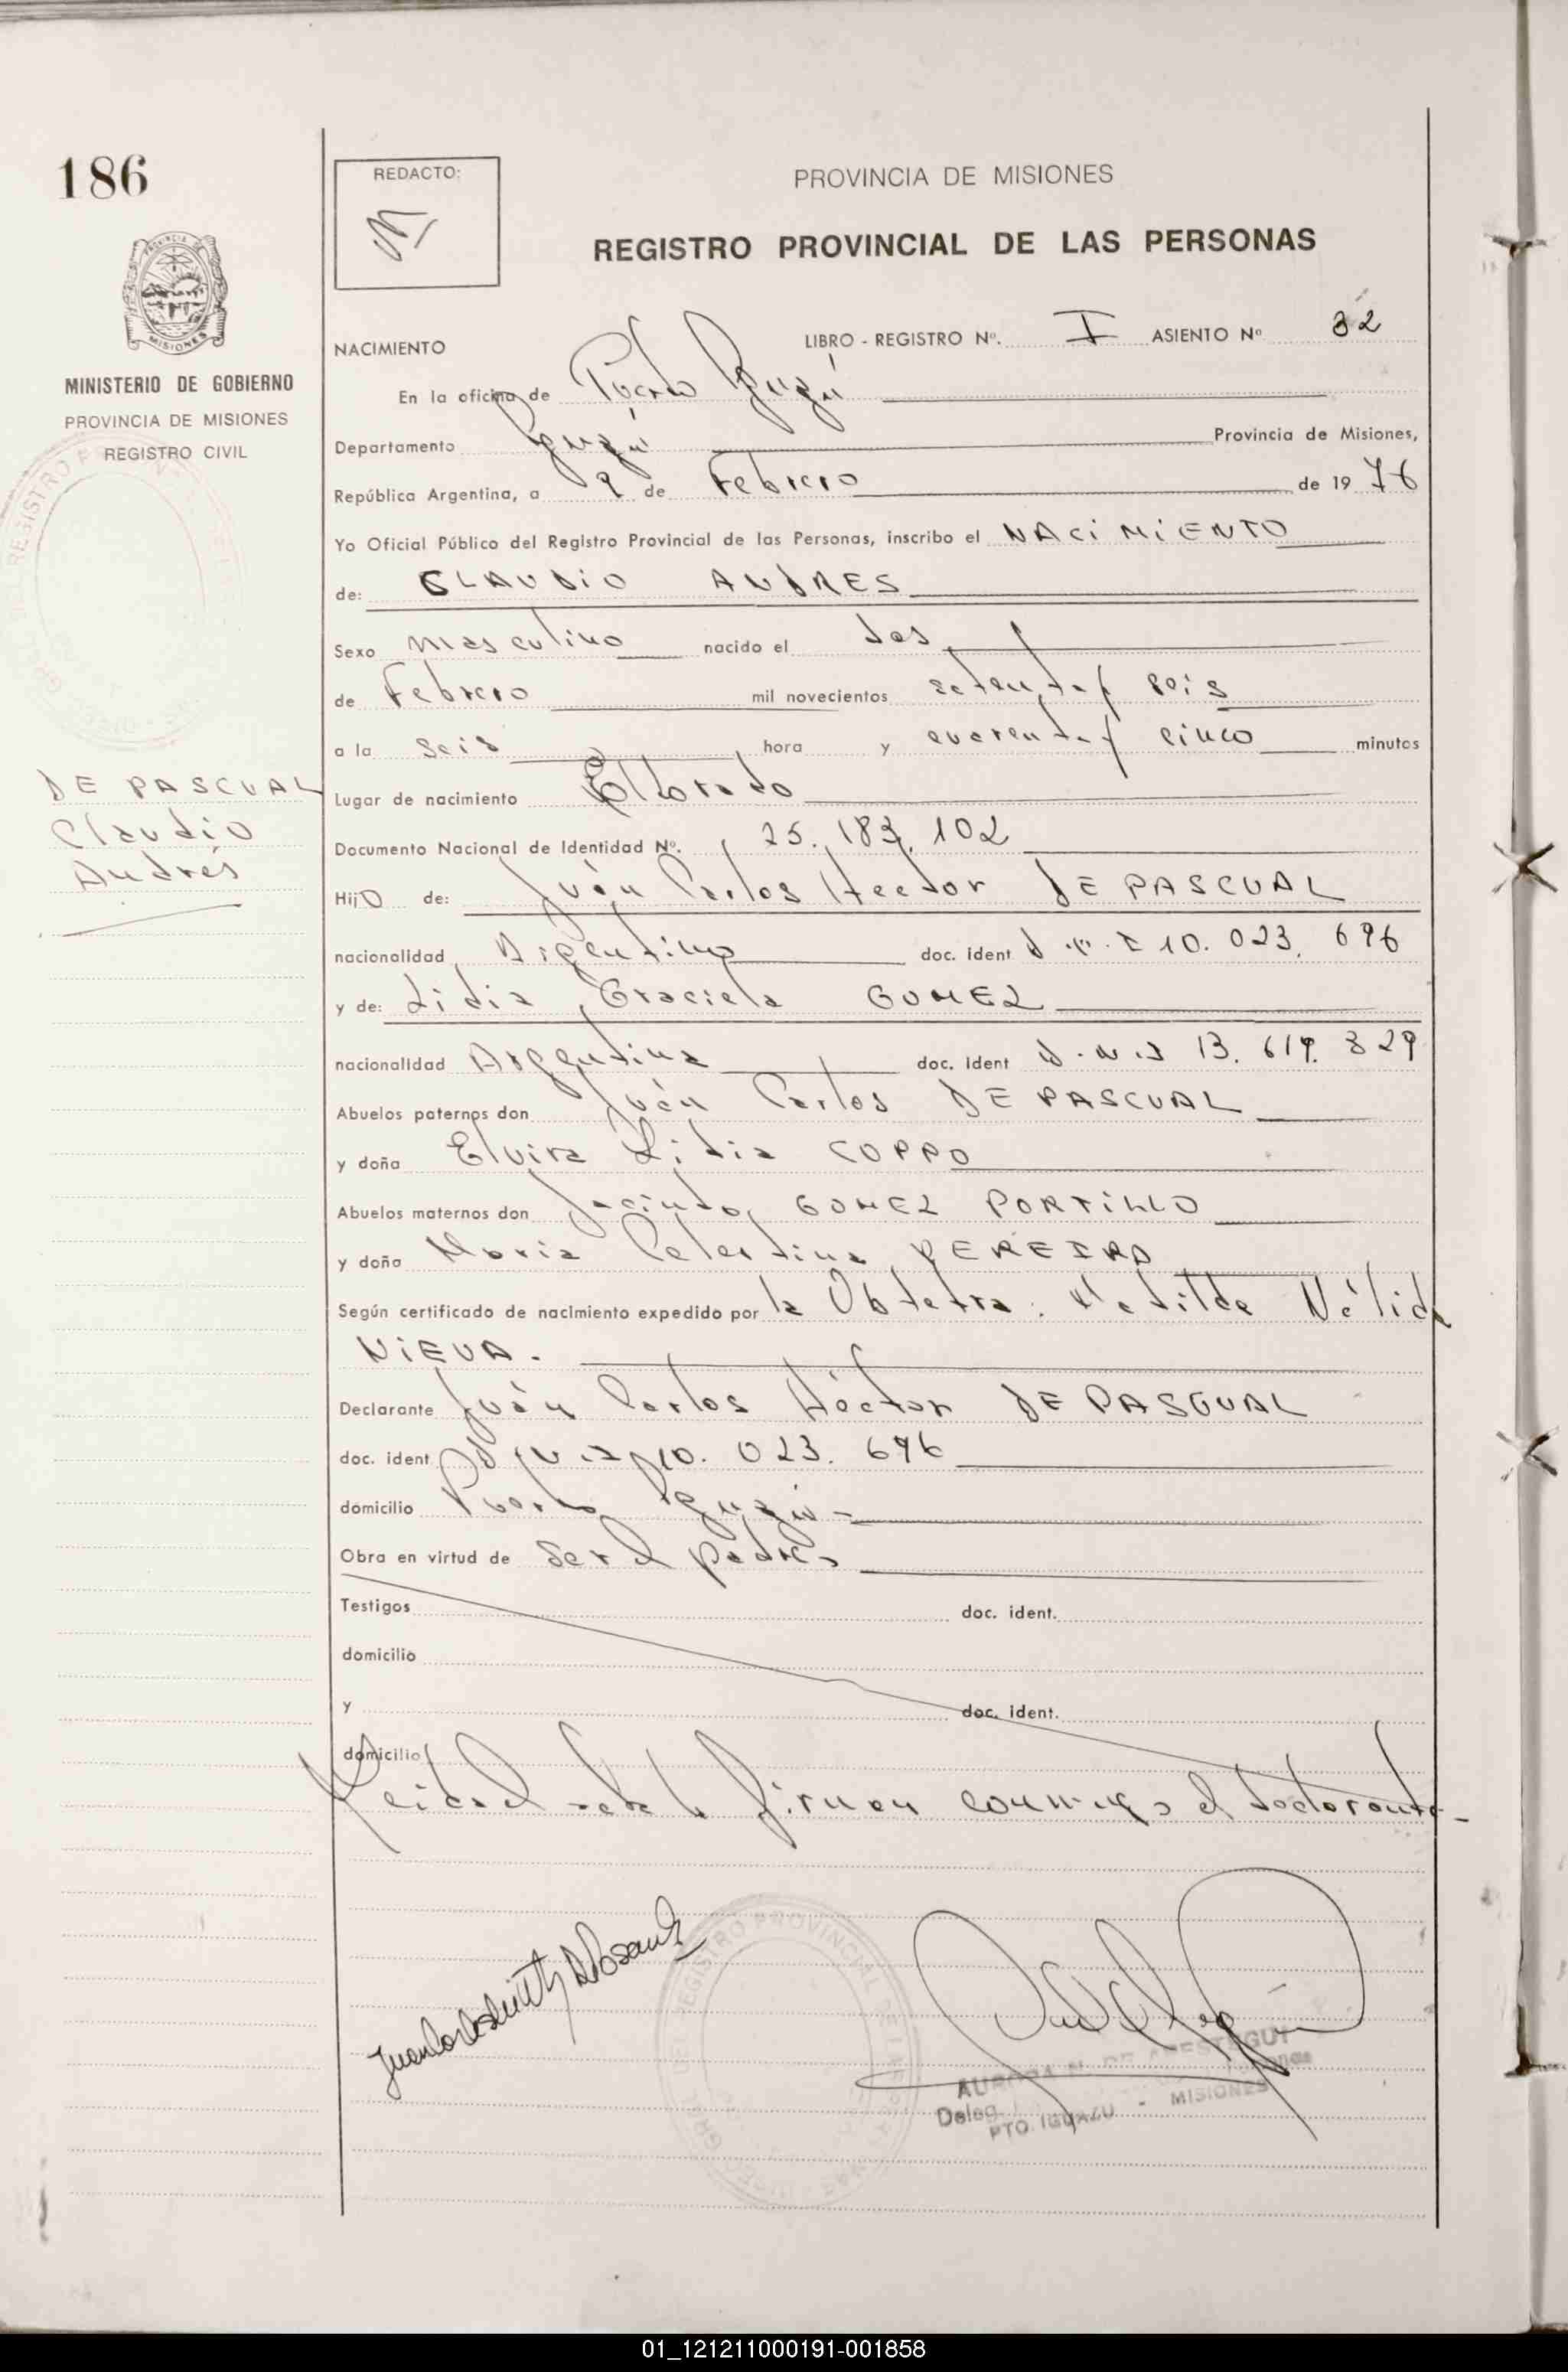 186
REDACTO:
PROVINCIA DE MISIONES
REGISTRO PROVINCIAL DE LAS PERSONAS
MINISTERIO DE GOBIERNO
PROVINCIA DE MISIONES
REGISTRO CIVIL
DE PASCUAL
Claudio
Andrés
NACIMIENTO
LIBRO - REGISTRO Nº. I ASIENTO Nº 32
En la oficina de Puerto Iguazú
Departamento Iguazú Provincia de Misiones,
República Argentina, a 9 de Febrero de 1976
Yo Oficial Público del Registro Provincial de las Personas, inscribo el NACIMIENTO
de: CLAUDIO ANDRES
Sexo masculino nacido el dos
de Febrero mil novecientos setenta y seis
a la seis hora y cuarenta y cinco minutos
Lugar de nacimiento Eldorado
Documento Nacional de Identidad Nº. 25.183.102
Hijo de: Juán Carlos Hector DE PASCUAL
nacionalidad Argentino doc. ident D.N.I 10.023.696
y de: Lidia Graciela GOMEZ
nacionalidad Argentina doc. ident D.N.I 13.619.329
Abuelos paternos don Juán Carlos DE PASCUAL
y doña Elvira Lidia COPPO
Abuelos maternos don Jacinto GOMEZ PORTILLO
y doña Maria Celestina PEREIRA
Según certificado de nacimiento expedido por la Obstetra. Matilde Nélida
NIEVA.
Declarante Juán Carlos Héctor DE PASCUAL
doc. ident. D.N.I 10.023.696
domicilio Puerto Iguazú -
Obra en virtud de ser el padre
Testigos doc. ident.
domicilio
y doc. ident.
domicilio
Leida el acta la firman conmigo el declarante-
REGISTRO PROVINCIAL DE LAS PERSONAS
AURORA N. DE
Deleg.
PTO. IGUAZU - MISIONES
01_121211000191-001858